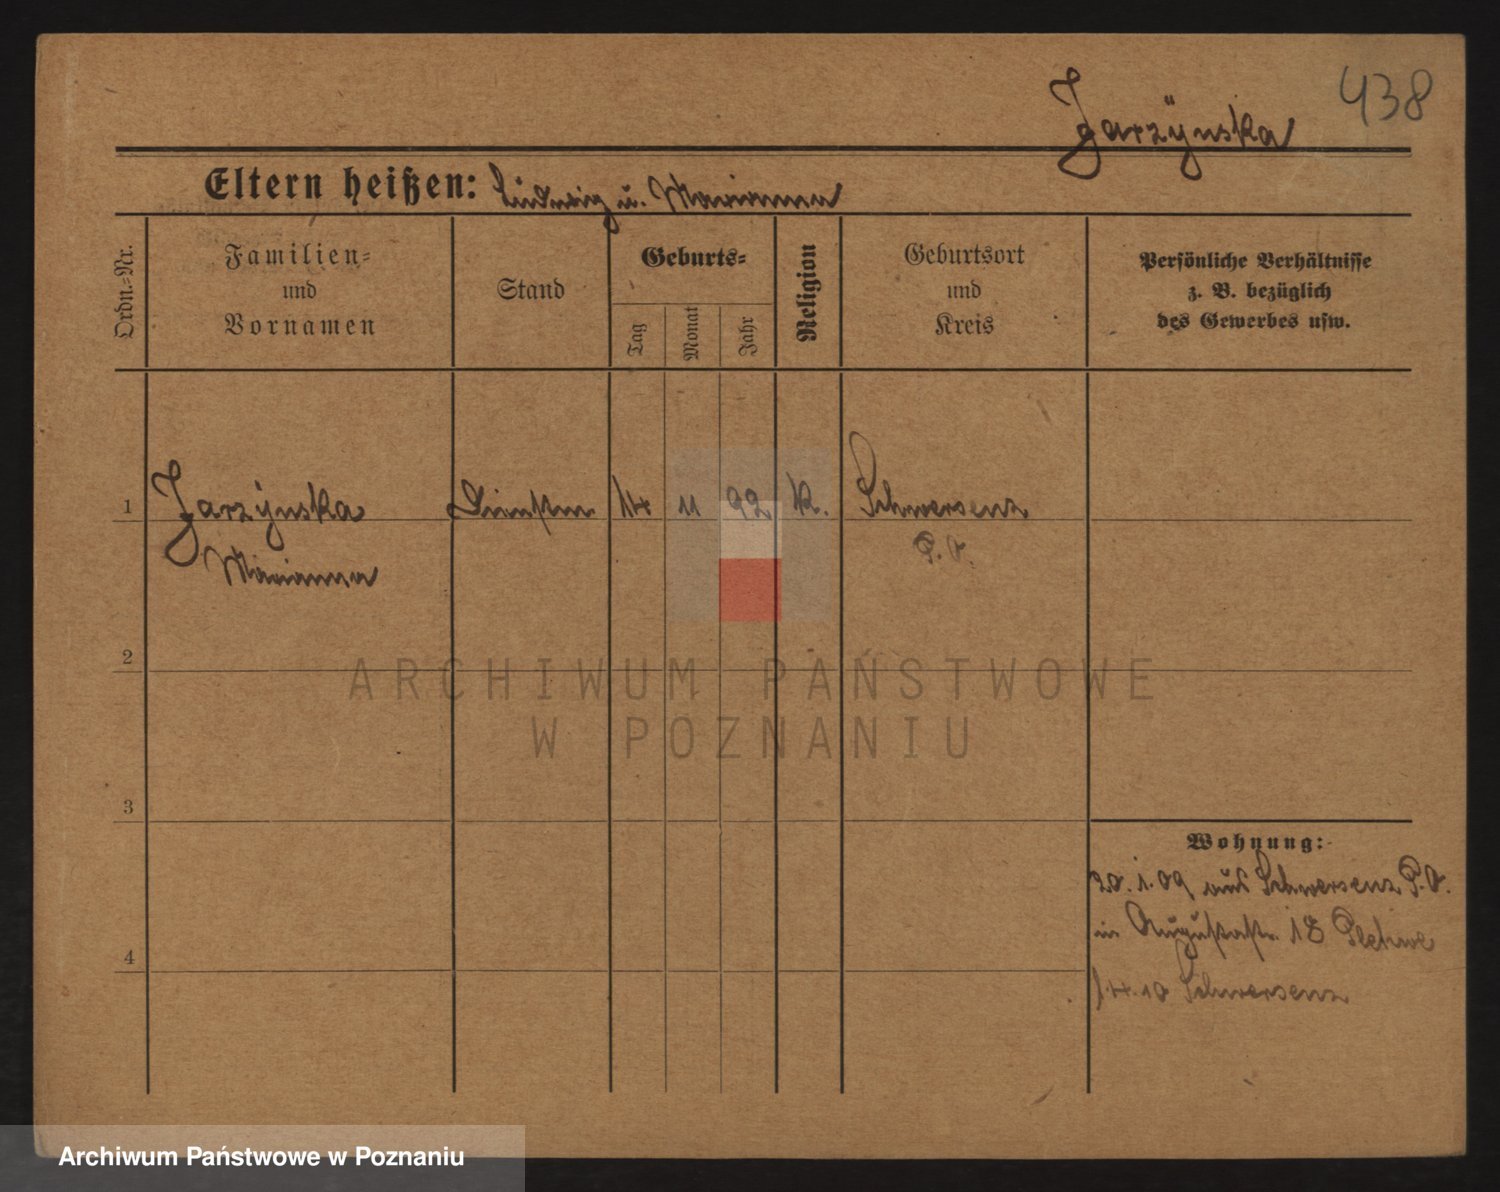 438
Jarzÿnska
Eltern heißen: Ludwig u. Marianna
Ordn.-Nr.
Familien-
und
Vornamen
Stand
Geburts-
Tag
Monat
Jahr
Religion
Geburtsort
und
Kreis
Persönliche Verhältnisse
z. B. bezüglich
des Gewerbes usw.
1 Jarzÿnska Dienstm 14 11 92 K. Schwersenz
Marianna P. O.
2
3
4
Wohnung:
20.1.09 aus Schwersenz P. O.
in Augustastr. 18
1.4.10 Schwersenz
ARCHIWUM PAŃSTWOWE
W POZNANIU
Archiwum Państwowe w Poznaniu